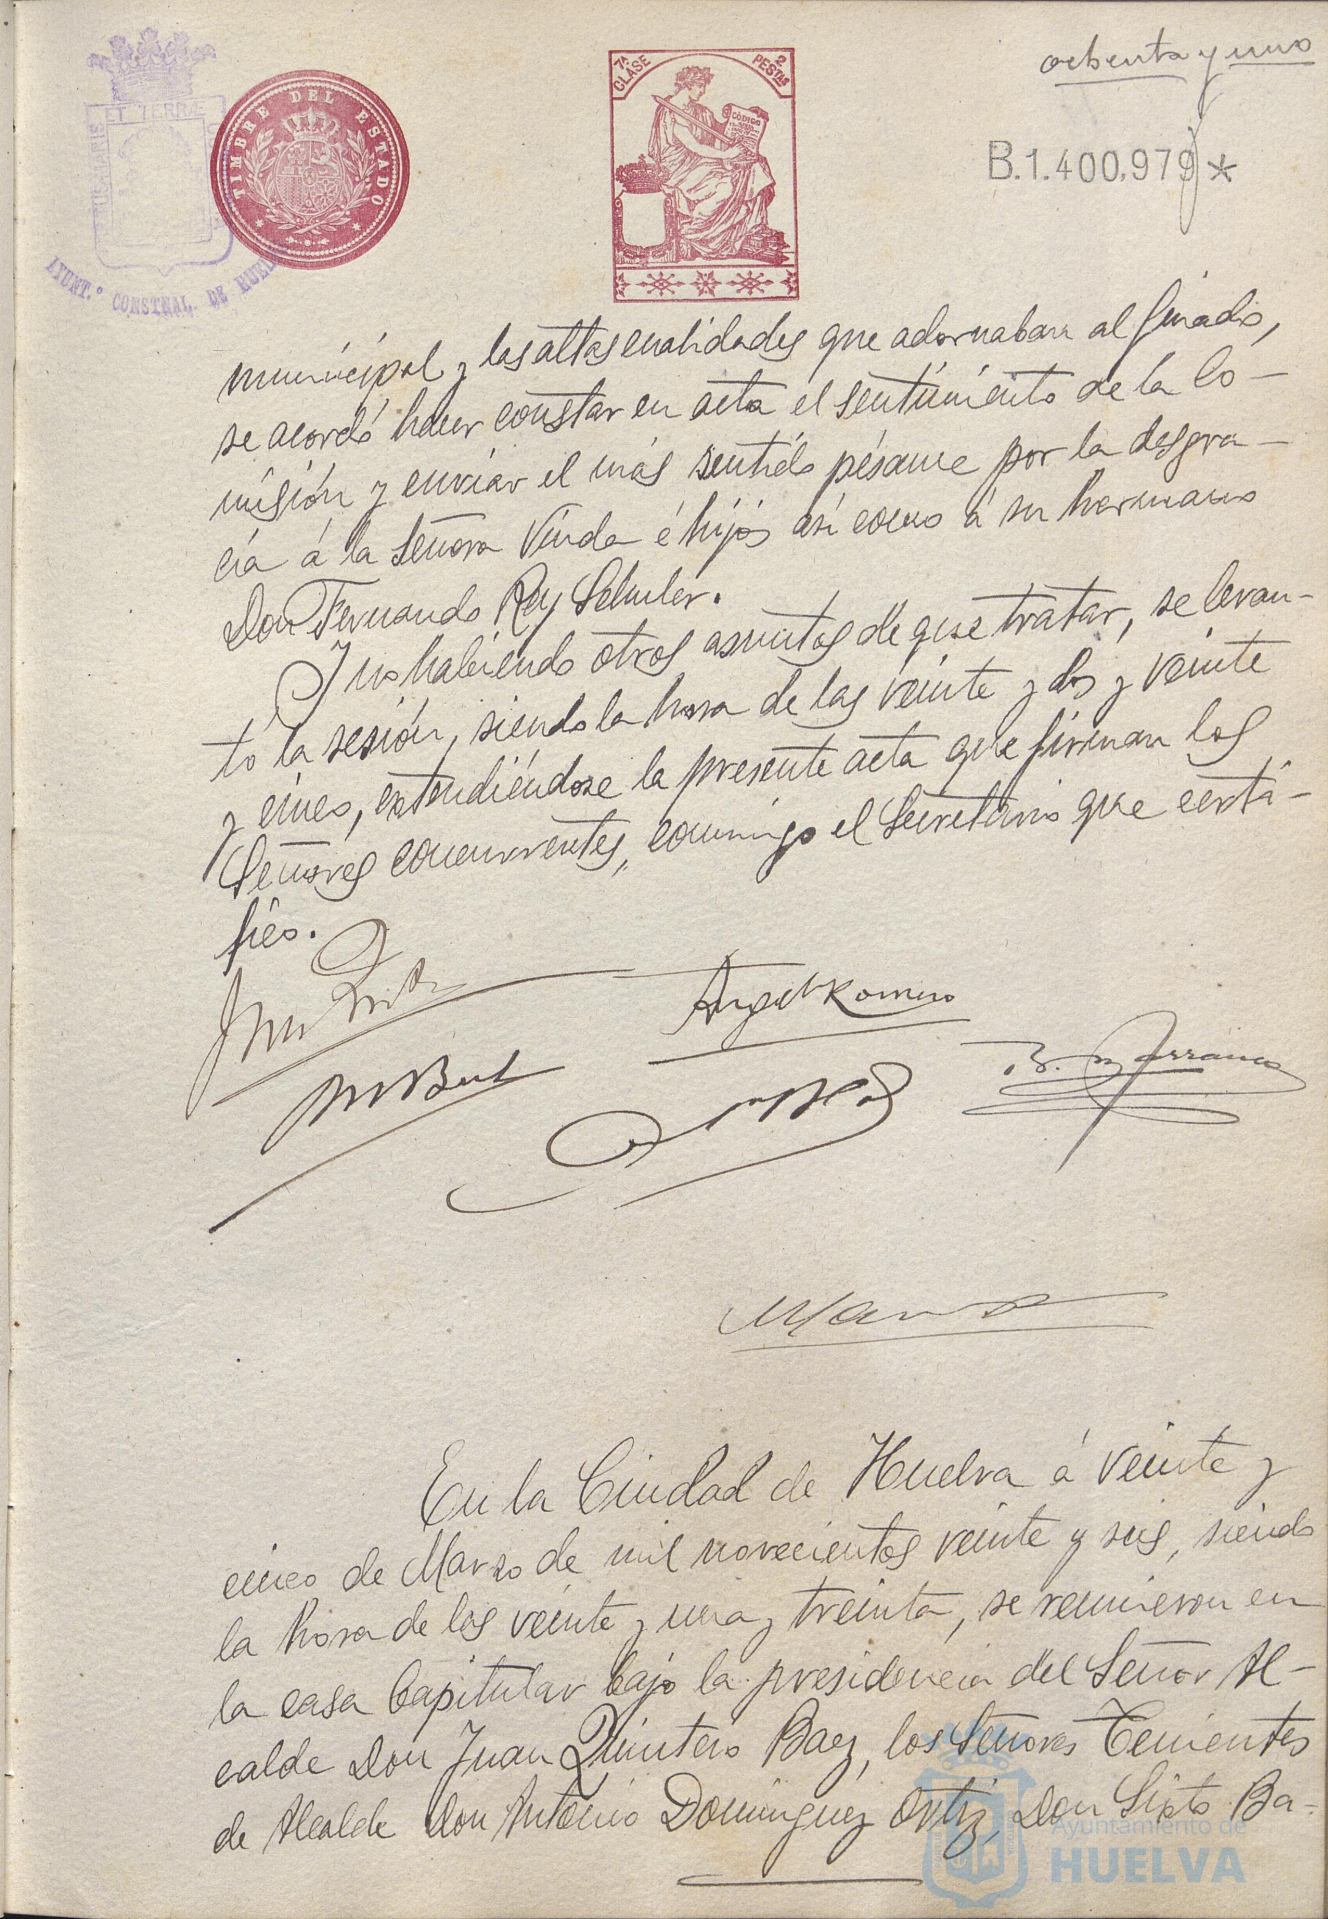 ochenta y uno
ET TERRÆ
AYUNT.º CONSTNAL. DE HUEL
TIMBRE DEL ESTADO
7ª CLASE
2 PESTAS
CÓDIGO
B.1.400,979*
municipal y las altas cualidades que adornaban al finado,
se acordó hacer constar en acta el sentimiento de la Co-
misión y enviar el más sentido pésame por la desgra-
cia á la Señora Viuda é hijos así como á su hermano
Don Fernando Rey Schuler.
Y no habiendo otros asuntos de que tratar, se levan-
tó la sesión, siendo la hora de las veinte y dos y veinte
y cinco, extendiéndose la presente acta que firman los
Señores concurrentes, conmigo el Secretario que certi-
fico.
Angel Romero
En la Ciudad de Huelva á veinte y
cinco de Marzo de mil novecientos veinte y seis, siendo
la hora de las veinte y una y treinta, se reunieron en
la casa Capitular bajo la presidencia del Señor Al-
calde Don Juan Quintero Baez, los Señores Tenientes
de Alcalde Don Antonio Dominguez Ortiz, Don Sixto Ba-
Ayuntamiento de
HUELVA